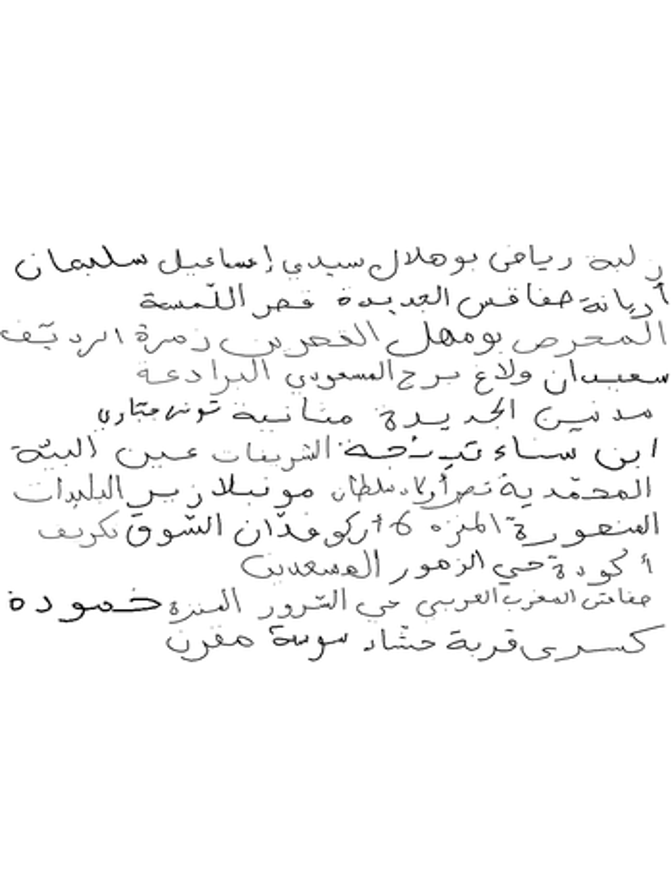 زلبة رياض بوهلال سيدي إسماعيل سليمان
أريانة صفاقس الجديدة قصر اللمسة
المعرض بومهل القصرين زهرة الرديّف
سعيدان ولاغ برج المسعودي البرادعة
مدنين الجديدة منانية تونس
ابن سيناء الشريفات عين البيّة
المحمّدية نصر أولاد سلطان مونبلازير البليدات
المنصورة المنزه 6 أركو فدّان السّوق تكريف
أكودة حي الزهور المسعدين
صفاقس المغرب العربي حي السّرور المنزه حمودة
كسرى قرية حشاد سوسة مقرن